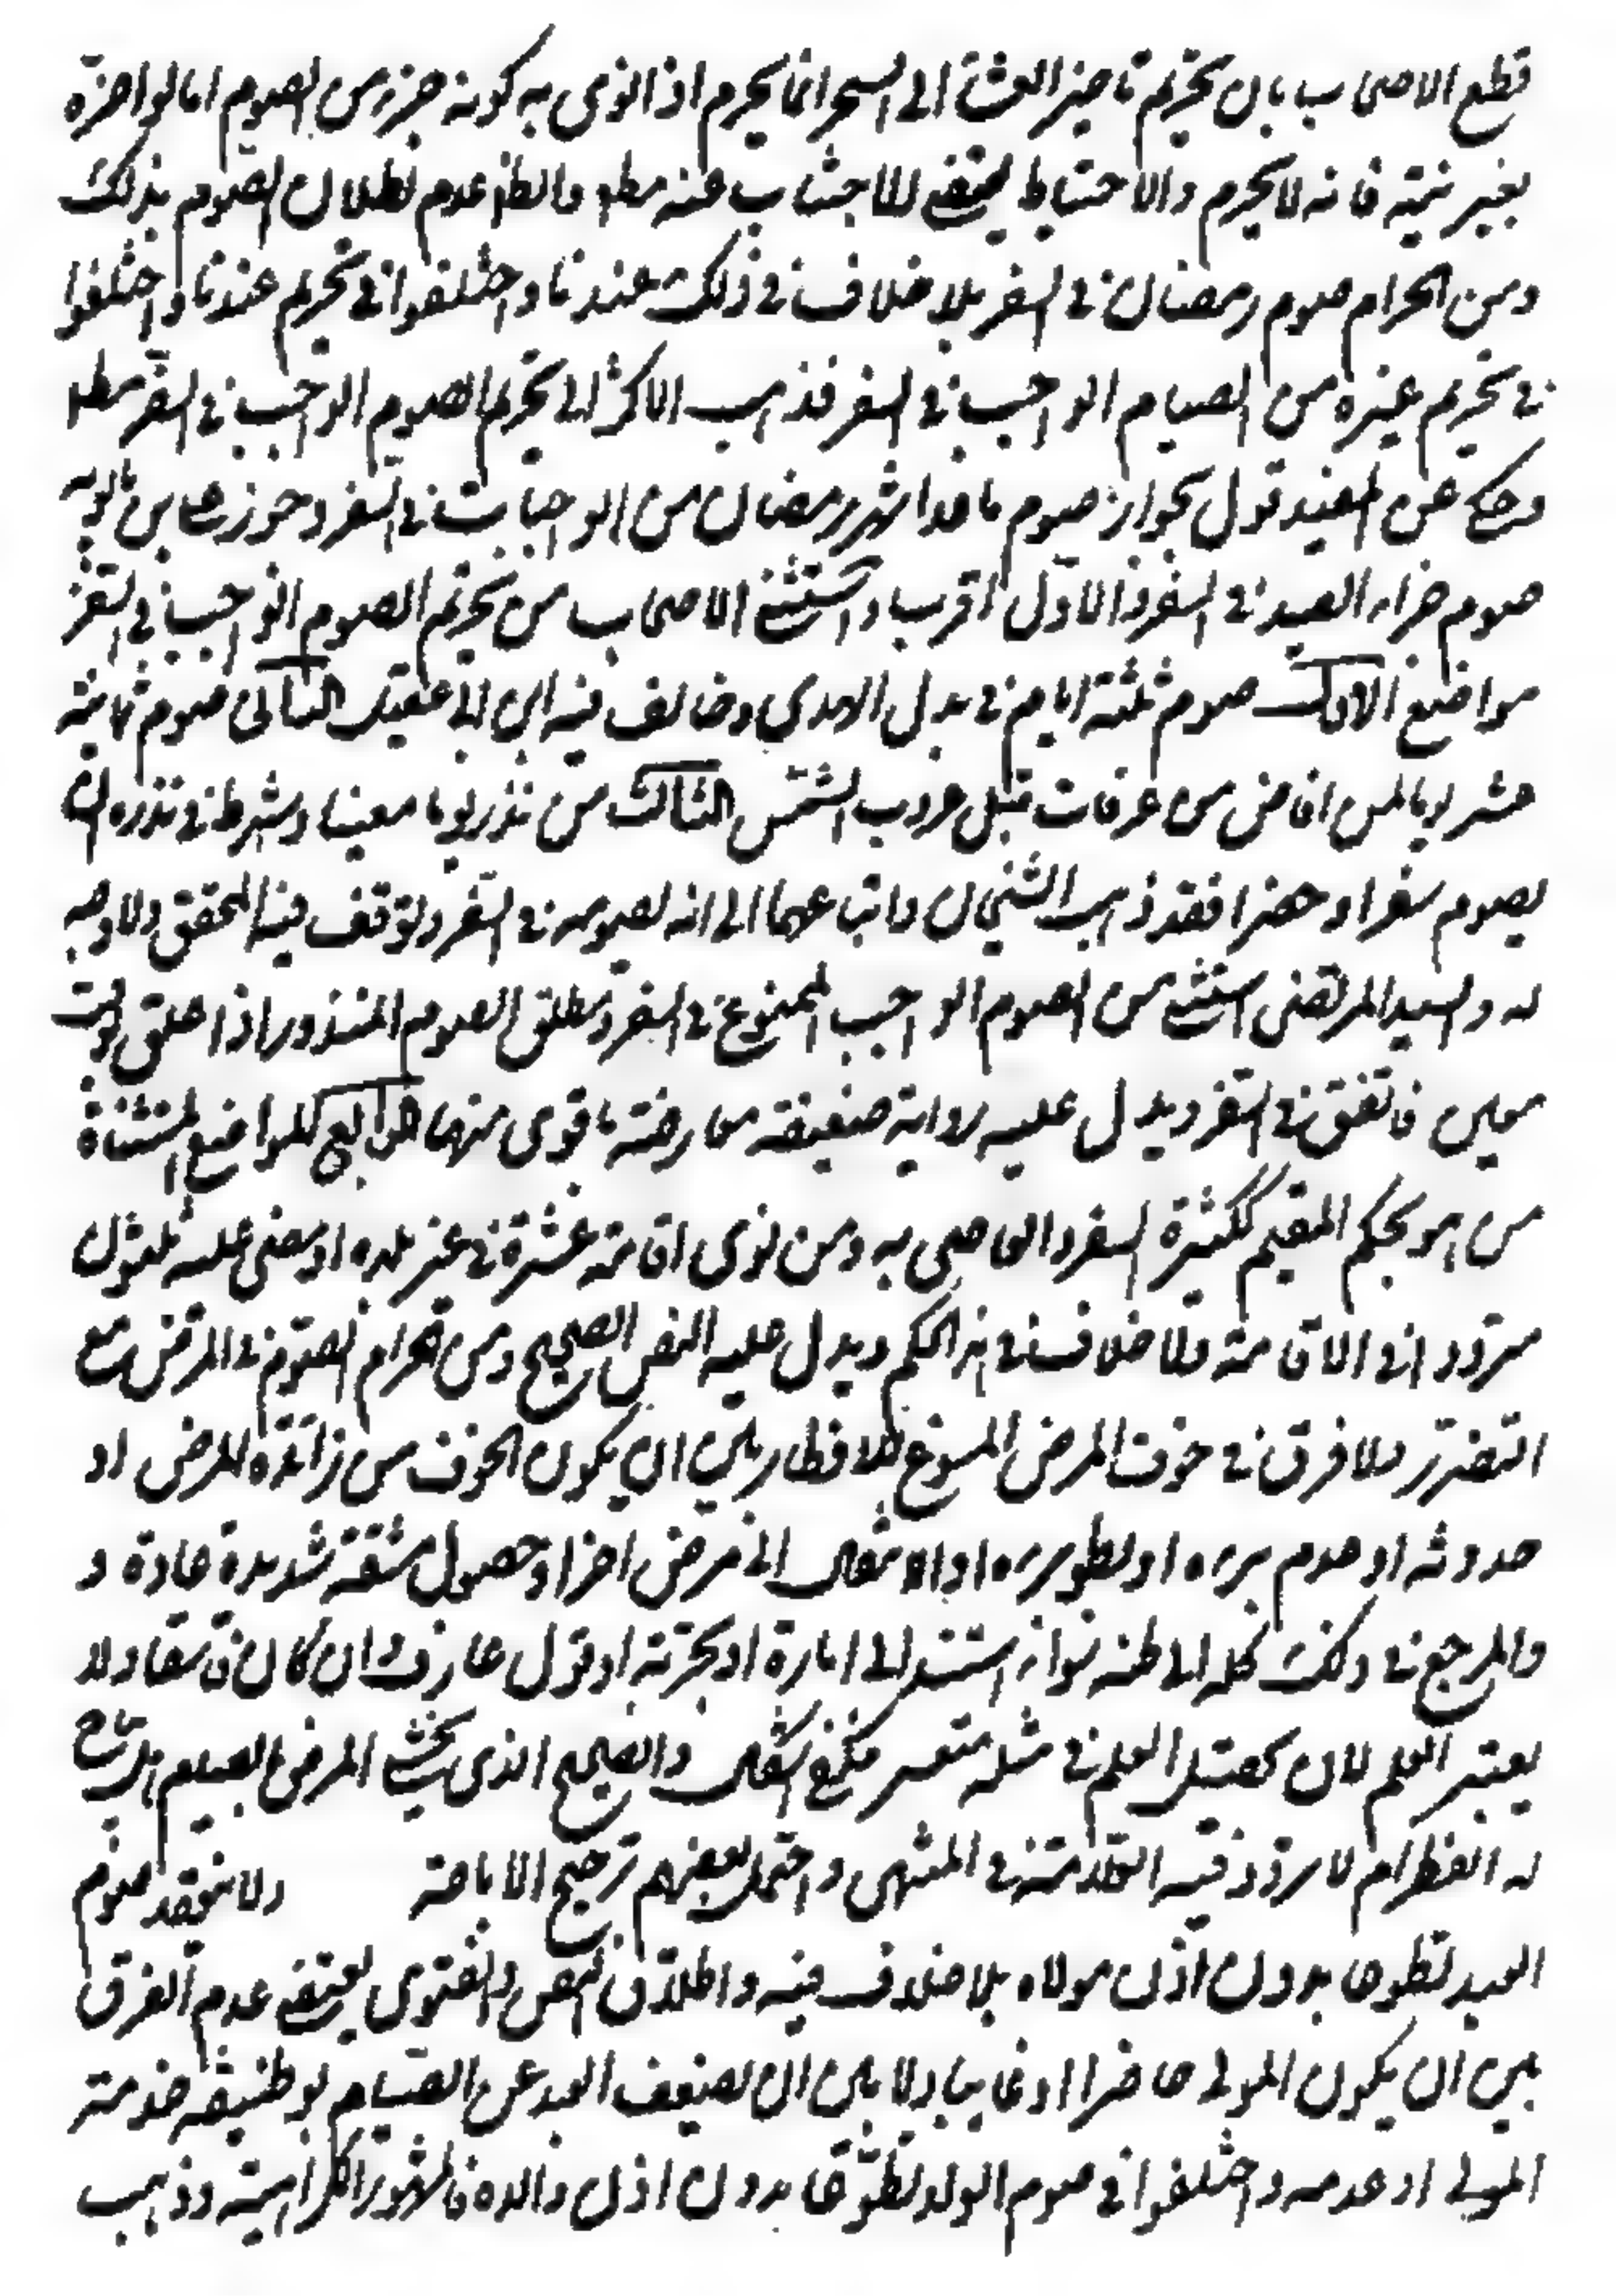 قطع الاصحاب بان تحريم تاخير العشاء الى السحر انما يحرم اذا نوى به كونه جزء من الصوم اما لو اخره
بغير نية فانه لا يحرم والاحتياط يقتضي الاجتناب عنه مط والظ عدم بطلان الصوم بذلك
ومن الحرام صوم رمضان في السفر بلا خلاف في ذلك عندنا واختلفوا في تحريم عندنا واختلفوا
في تحريم غيره من الصيام الواجب في السفر فذهب الاكثر الى تحريم الصوم الواجب في السفر مط
وحكى عن المفيد قول بجواز صوم ما عدا شهر رمضان من الواجبات في السفر وجوز علي بن بابويه
صوم جزاء الصيد في السفر والاول اقرب واستثنى الاصحاب من تحريم الصوم الواجب في السفر
مواضع الاول صوم ثلثة ايام في بدل الهدي وخالف فيه ابن ابي عقيل الثاني صوم ثمانية
عشر يوما لمن افاض من عرفات قبل غروب الشمس الثالث من نذر يوما معينا وشرط في نذره ان
يصوم سفرا وحضرا فقد ذهب الشيخان واتباعهما الى انه يصومه في السفر وتوقف فيه المحقق ولا وجه
له والسيد المرتضى استثنى من الصوم الواجب الممنوع في السفر مطلق الصوم المنذور اذا علق بوقت
معين فاتفق في السفر ويدل عليه رواية ضعيفة معارضة باقوى منها الرابع المواضع المستثناة
من هو بحكم المقيم ككثير السفر والعاصي به ومن نوى اقامة عشرة في غير بلده او مضى عليه ثلثون
مترددا في الاقامة ولا خلاف في هذا الحكم ويدل عليه النص الصحيح ومن الحرام الصوم في المرض مع
التضرر ولا فرق في خوف المرض المسوغ للافطار بين ان يكون الخوف من زيادة المرض او
حدوثه او عدم برءه او بطو برءه او الانتقال الى مرض اخر او حصول مشقة شديدة عادة و
والمرجع في ذلك كله الى ظنه سواء استند الى امارة او تجربة او قول عارف وان كان فاسقا ولا
يعتبر العلم لان تحصيل العلم في مثله متعسر فكفى الظن والصحيح الذي يخشى المرض بالصيام هل يباح
له الفطر ام لا تردد فيه العلامة في المنتهى واحتمل بعضهم ترجيح الاباحة ولا ينعقد صوم
العبد تطوعا بدون اذن مولاه بلا خلاف فيه واطلاق النص والفتوى يقتضي عدم الفرق
بين ان يكون المولى حاضرا او غايبا ولا بين ان يضعف العبد عن القيام بوظيفة خدمة
المولى او عدمه واختلفوا في صوم الولد تطوعا بدون اذن والده فالمشهور الكراهية وذهب